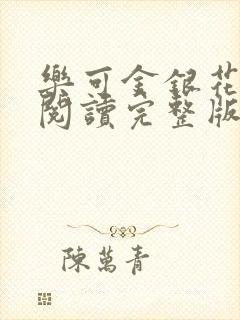 樂可金銀花
閱讀完整版
陳萬青